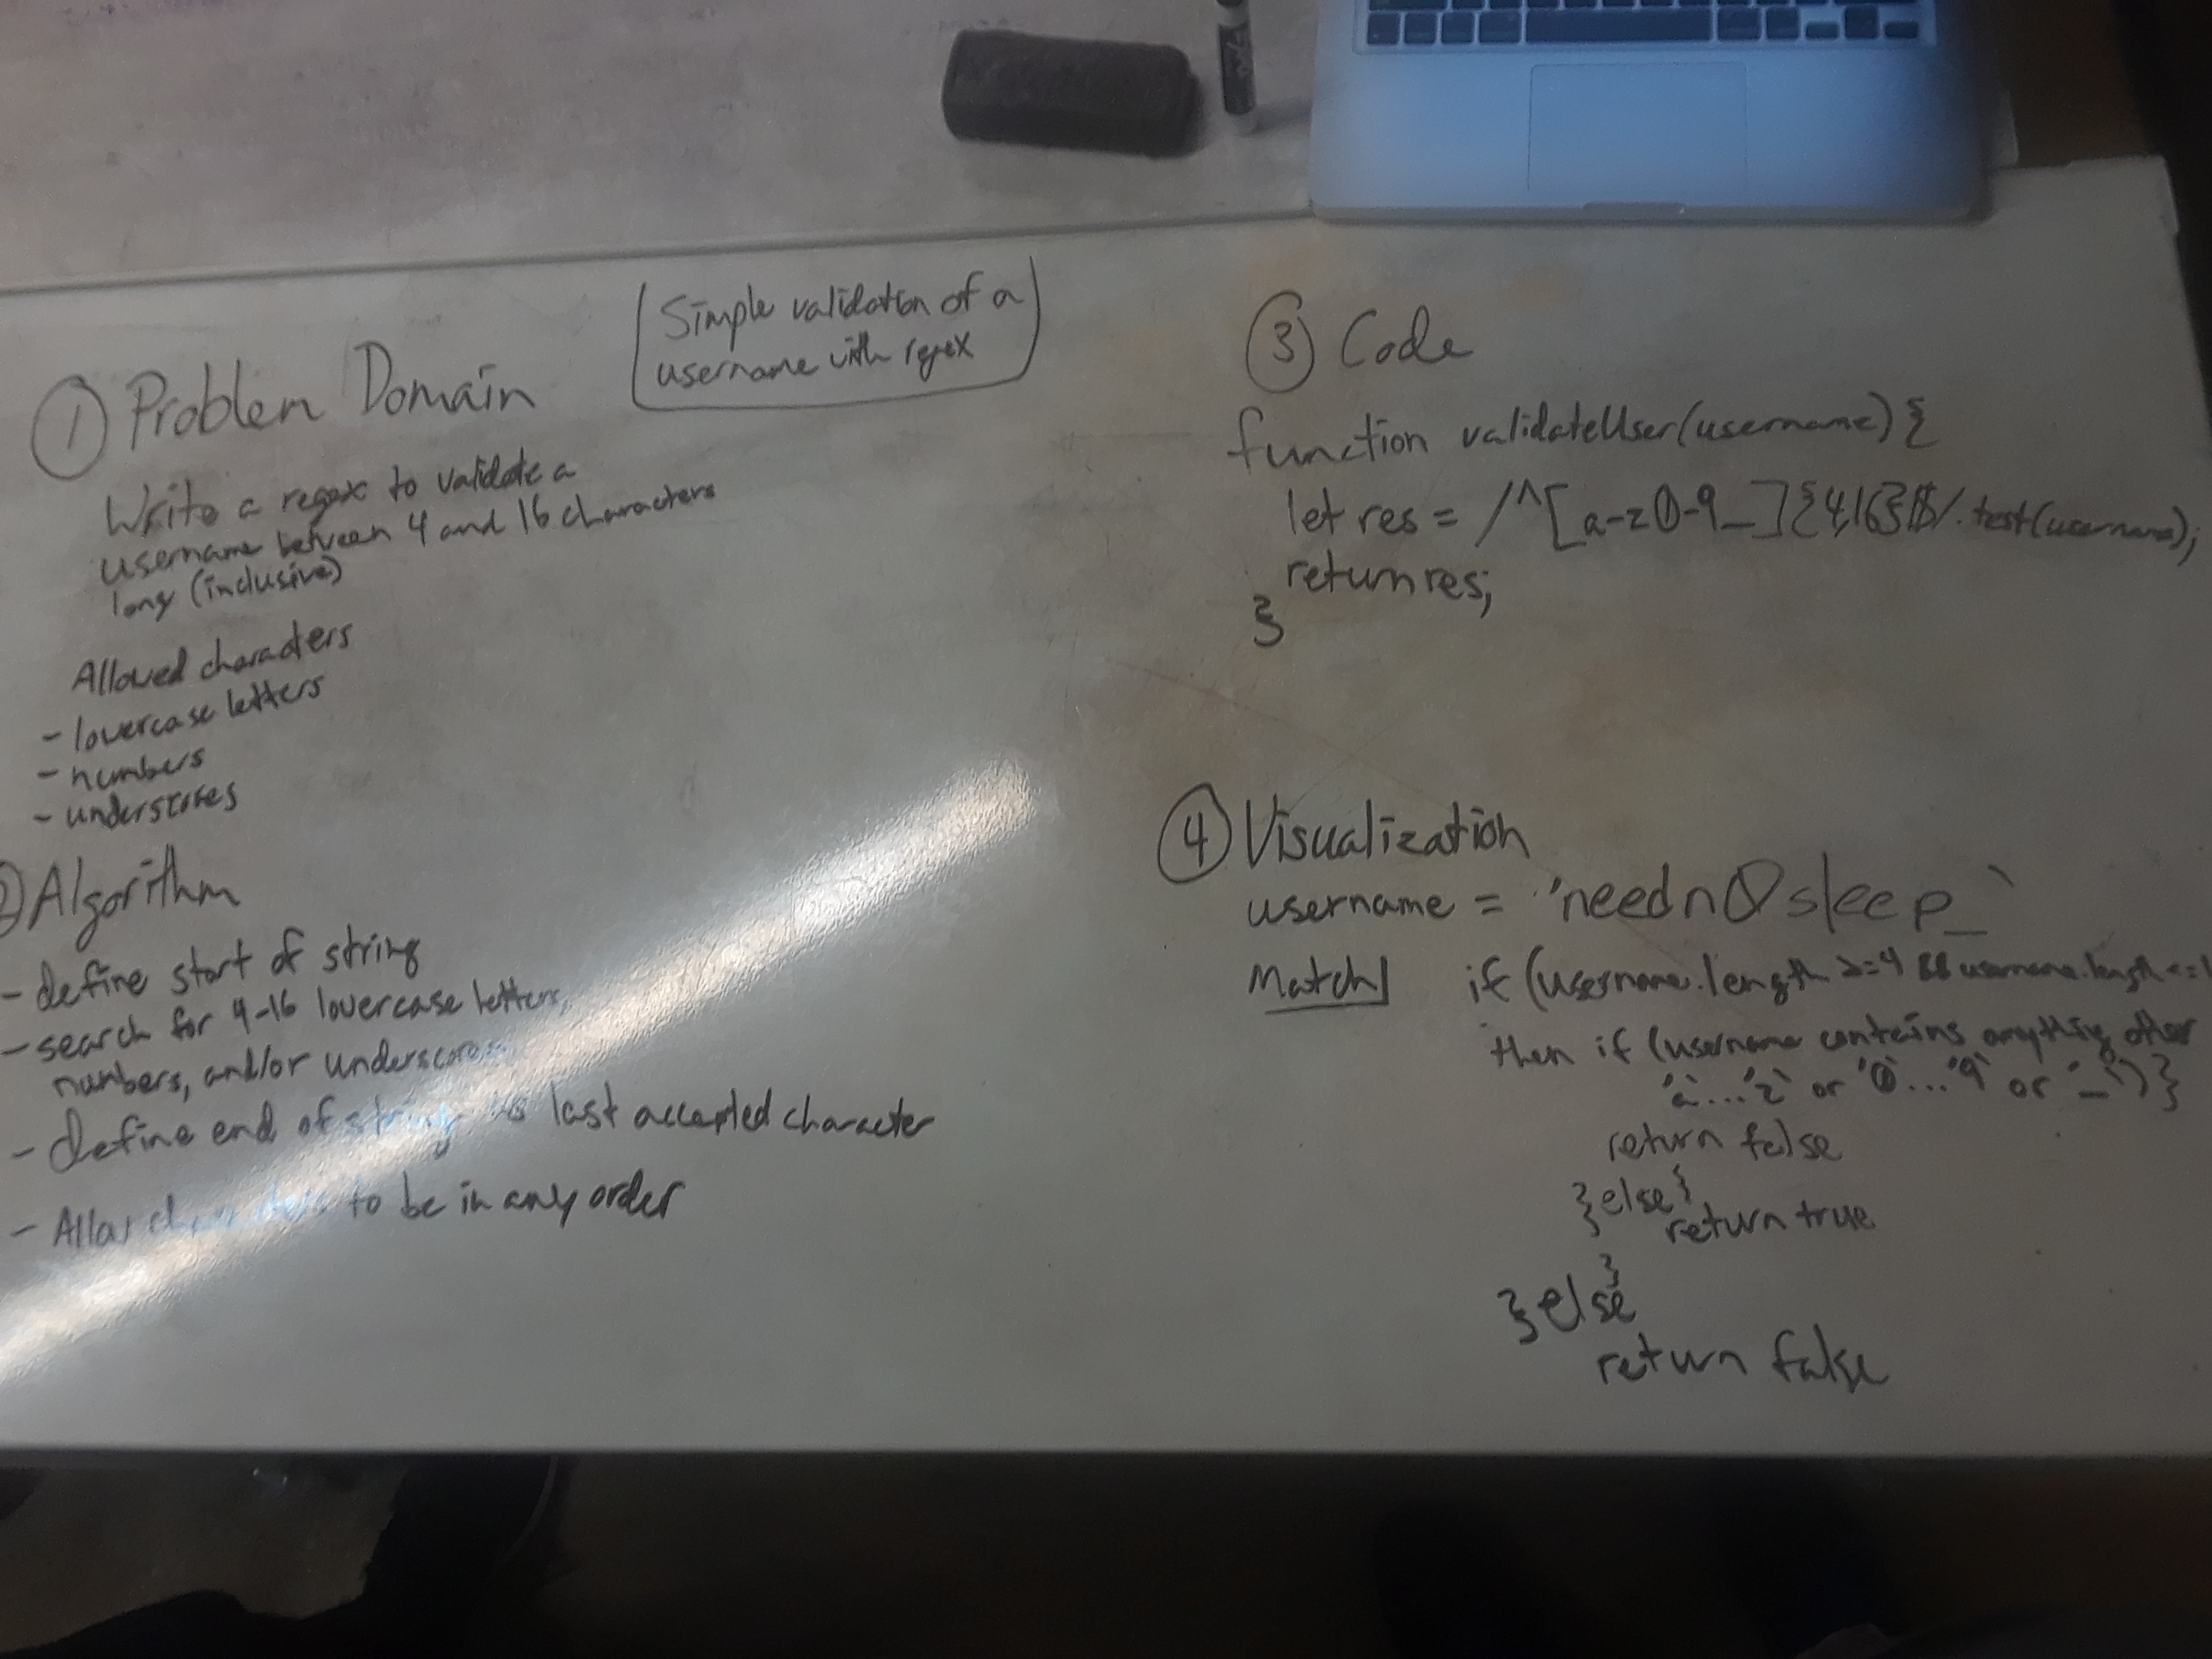 Simple validation of a
username with regex
① Problem Domain
Write a regex to validate a
username between 4 and 16 characters
long (inclusive)
Allowed characters
- lowercase letters
- numbers
- underscores
② Algorithm
- define start of string
- search for 4-16 lowercase letters,
numbers, and/or underscores
- define end of string as last accepted character
- Allow characters to be in any order
③ Code
function validateUser(username){
let res = /^[a-z0-9_]{4,16}$/.test(username);
return res;
}
④ Visualization
username = 'needn0sleep_'
Match if (username.length >=4 && username.length <=1
then if (username contains anything other
'a'...'z' or '0'...'9' or '_'){
return false
}else{
return true
}
}else
return false